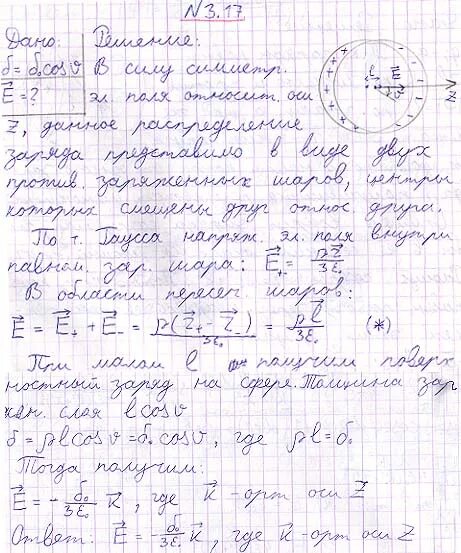 N 3.17
Дано: Решение:
σ = σ₀cosϑ В силу симметр.
E⃗ = ? эл. поля относит. оси
Z, данное распределение
заряда представимо в виде двух
против. заряженных шаров, центры
которых смещены друг относ. друга.
По т. Гаусса напряж. эл. поля внутри
равном. зар. шара: E⃗₊ = ρr⃗/3ε₀
В области пересеч. шаров:
E⃗ = E⃗₊ + E⃗₋ = ρ(r⃗₊ - r⃗₋)/3ε₀ = ρl⃗/3ε₀ (*)
При малом l получим поверх
ностный заряд на сфере. Толщина зар
жен. слоя l cosϑ
σ = ρl cosϑ = σ₀ cosϑ, где ρl = σ₀
Тогда получим:
E⃗ = - σ₀/3ε₀ k⃗, где k⃗ - орт оси Z
Ответ: E⃗ = - σ₀/3ε₀ k⃗, где k⃗ - орт оси Z
l E⃗ ϑ
Z